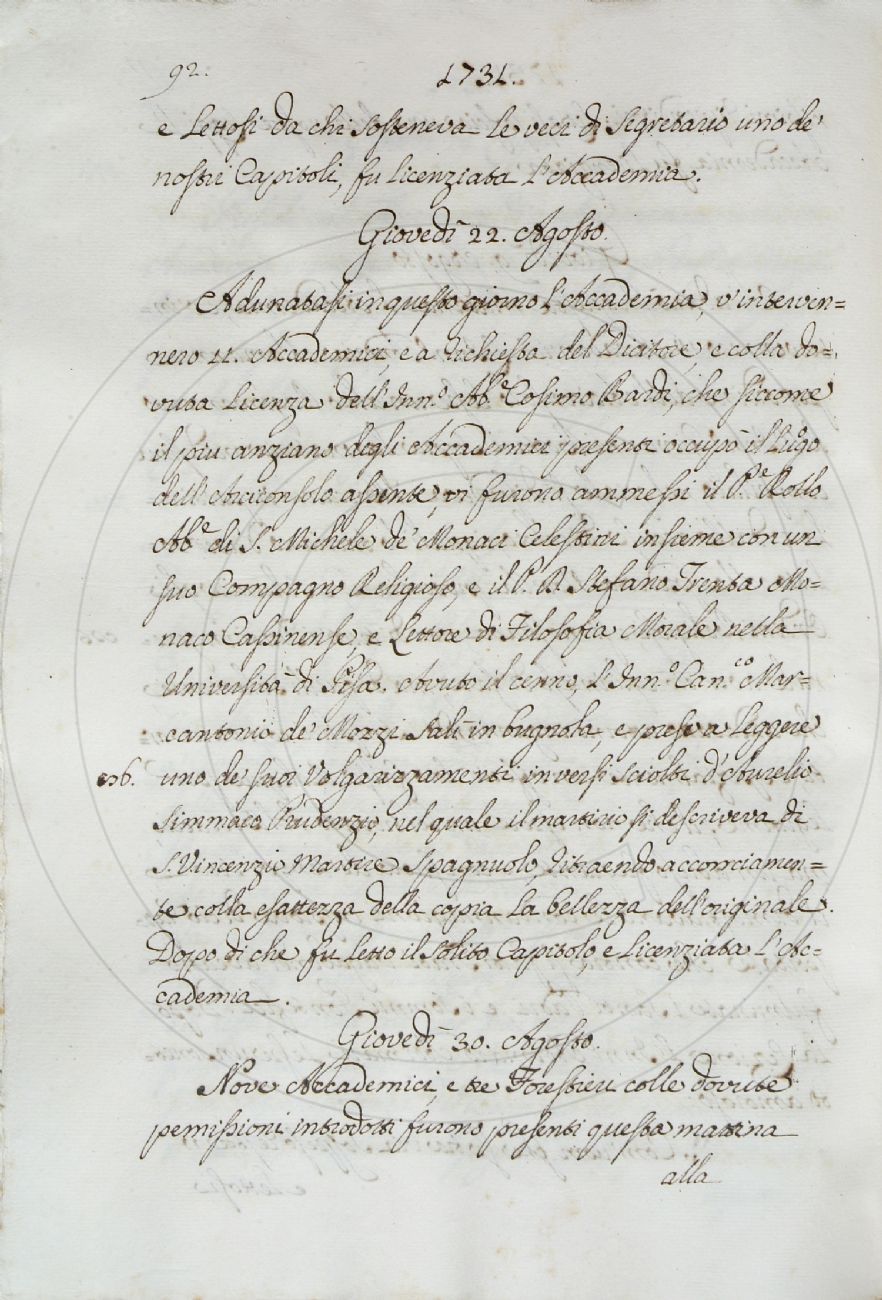 92.
1731.
e Lettosi da chi sosteneva le veci di Segretario uno de'
nostri Capitoli, fu licenziata l'Accademia.
Giovedì 22. Agosto.
Adunatasi in questo giorno l'Accademia, v'interven=
nero 11. Accademici, e a richiesta del Dicitore, e colla do=
vuta licenza dell'Inn.º Ab.e Cosimo Bardi, che siccome
il piu anziano degli Accademici presenti occupò il luogo
dell'Arciconsolo assente, vi furono ammessi il P.e Rollo
Ab.e di S. Michele de' Monaci Celestini insieme con un
suo Compagno Religioso, e il P. D. Stefano Trenta Mo=
naco Cassinense, e Lettore di Filosofia Morale nella
Università di Pisa. Avuto il cenno, l'Inn.º Can.co Mar=
cantonio de' Mozzi salì in bugnola, e prese a leggere
106. uno de' suoi Volgarizzamenti in versi sciolti d'Aurelio
Simmaco Prudenzio, nel quale il martirio si descriveva di
S. Vincenzio Martire Spagnuolo, ritraendo acconciamen=
te colla esattezza della copia la bellezza dell'originale.
Dopo di che fu letto il solito Capitolo, e licenziata l'Ac=
cademia.
Giovedì 30. Agosto.
Nove Accademici, e tre Forestieri colle dovute
pemissioni introdotti furono presenti questa mattina
alla